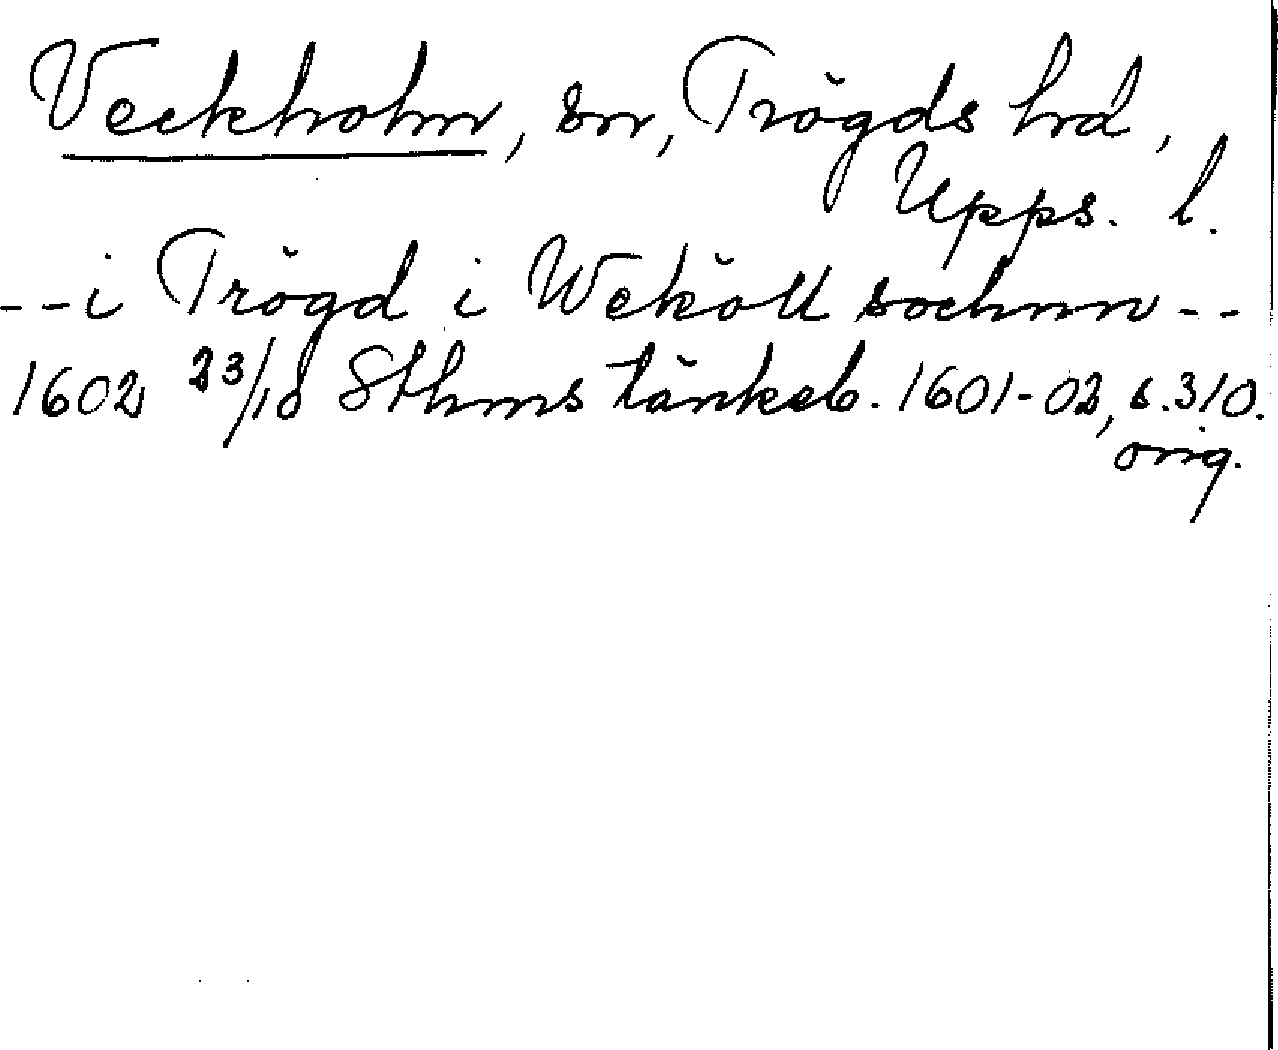 Veckholm, sn, Trögds hrd,
Upps. l.
--i Trögd i Weköll sochnn--
1602 23/10 Sthms tänkeb. 1601-02, s. 310.
orig.